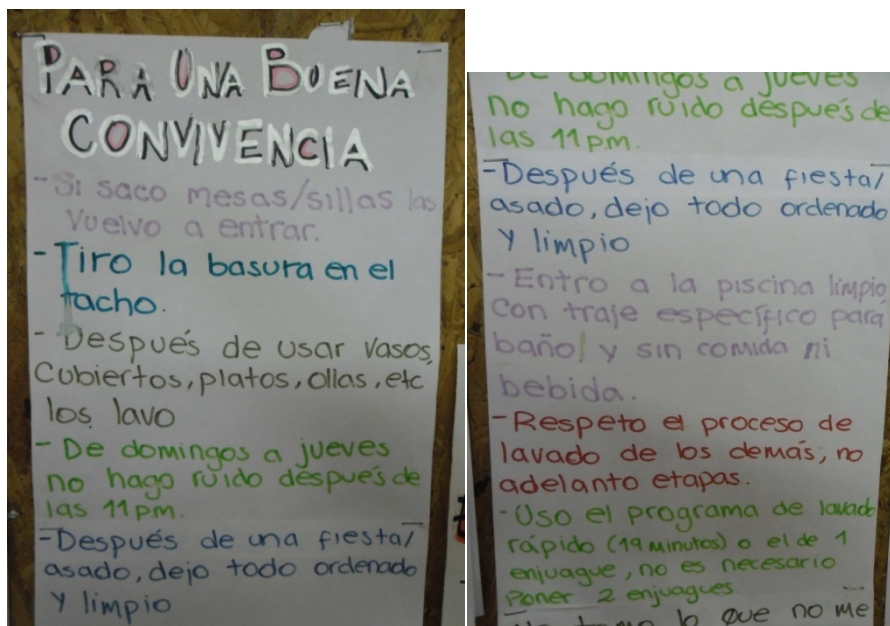 PARA UNA BUENA
CONVIVENCIA
- Si saco mesas/sillas las
vuelvo a entrar.
- Tiro la basura en el
tacho.
- Después de usar vasos,
cubiertos, platos, ollas, etc
los lavo
- De domingos a jueves
no hago ruido después de
las 11 pm.
- Después de una fiesta/
asado, dejo todo ordenado
y limpio
De domingos a jueves
no hago ruido después de
las 11 pm.
- Después de una fiesta/
asado, dejo todo ordenado
y limpio
- Entro a la piscina limpio,
con traje específico para
baño y sin comida ni
bebida.
- Respeto el proceso de
lavado de los demás, no
adelanto etapas.
- Uso el programa de lavado
rápido (19 minutos) o el de 1
enjuague, no es necesario
Poner 2 enjuagues
lo que no me